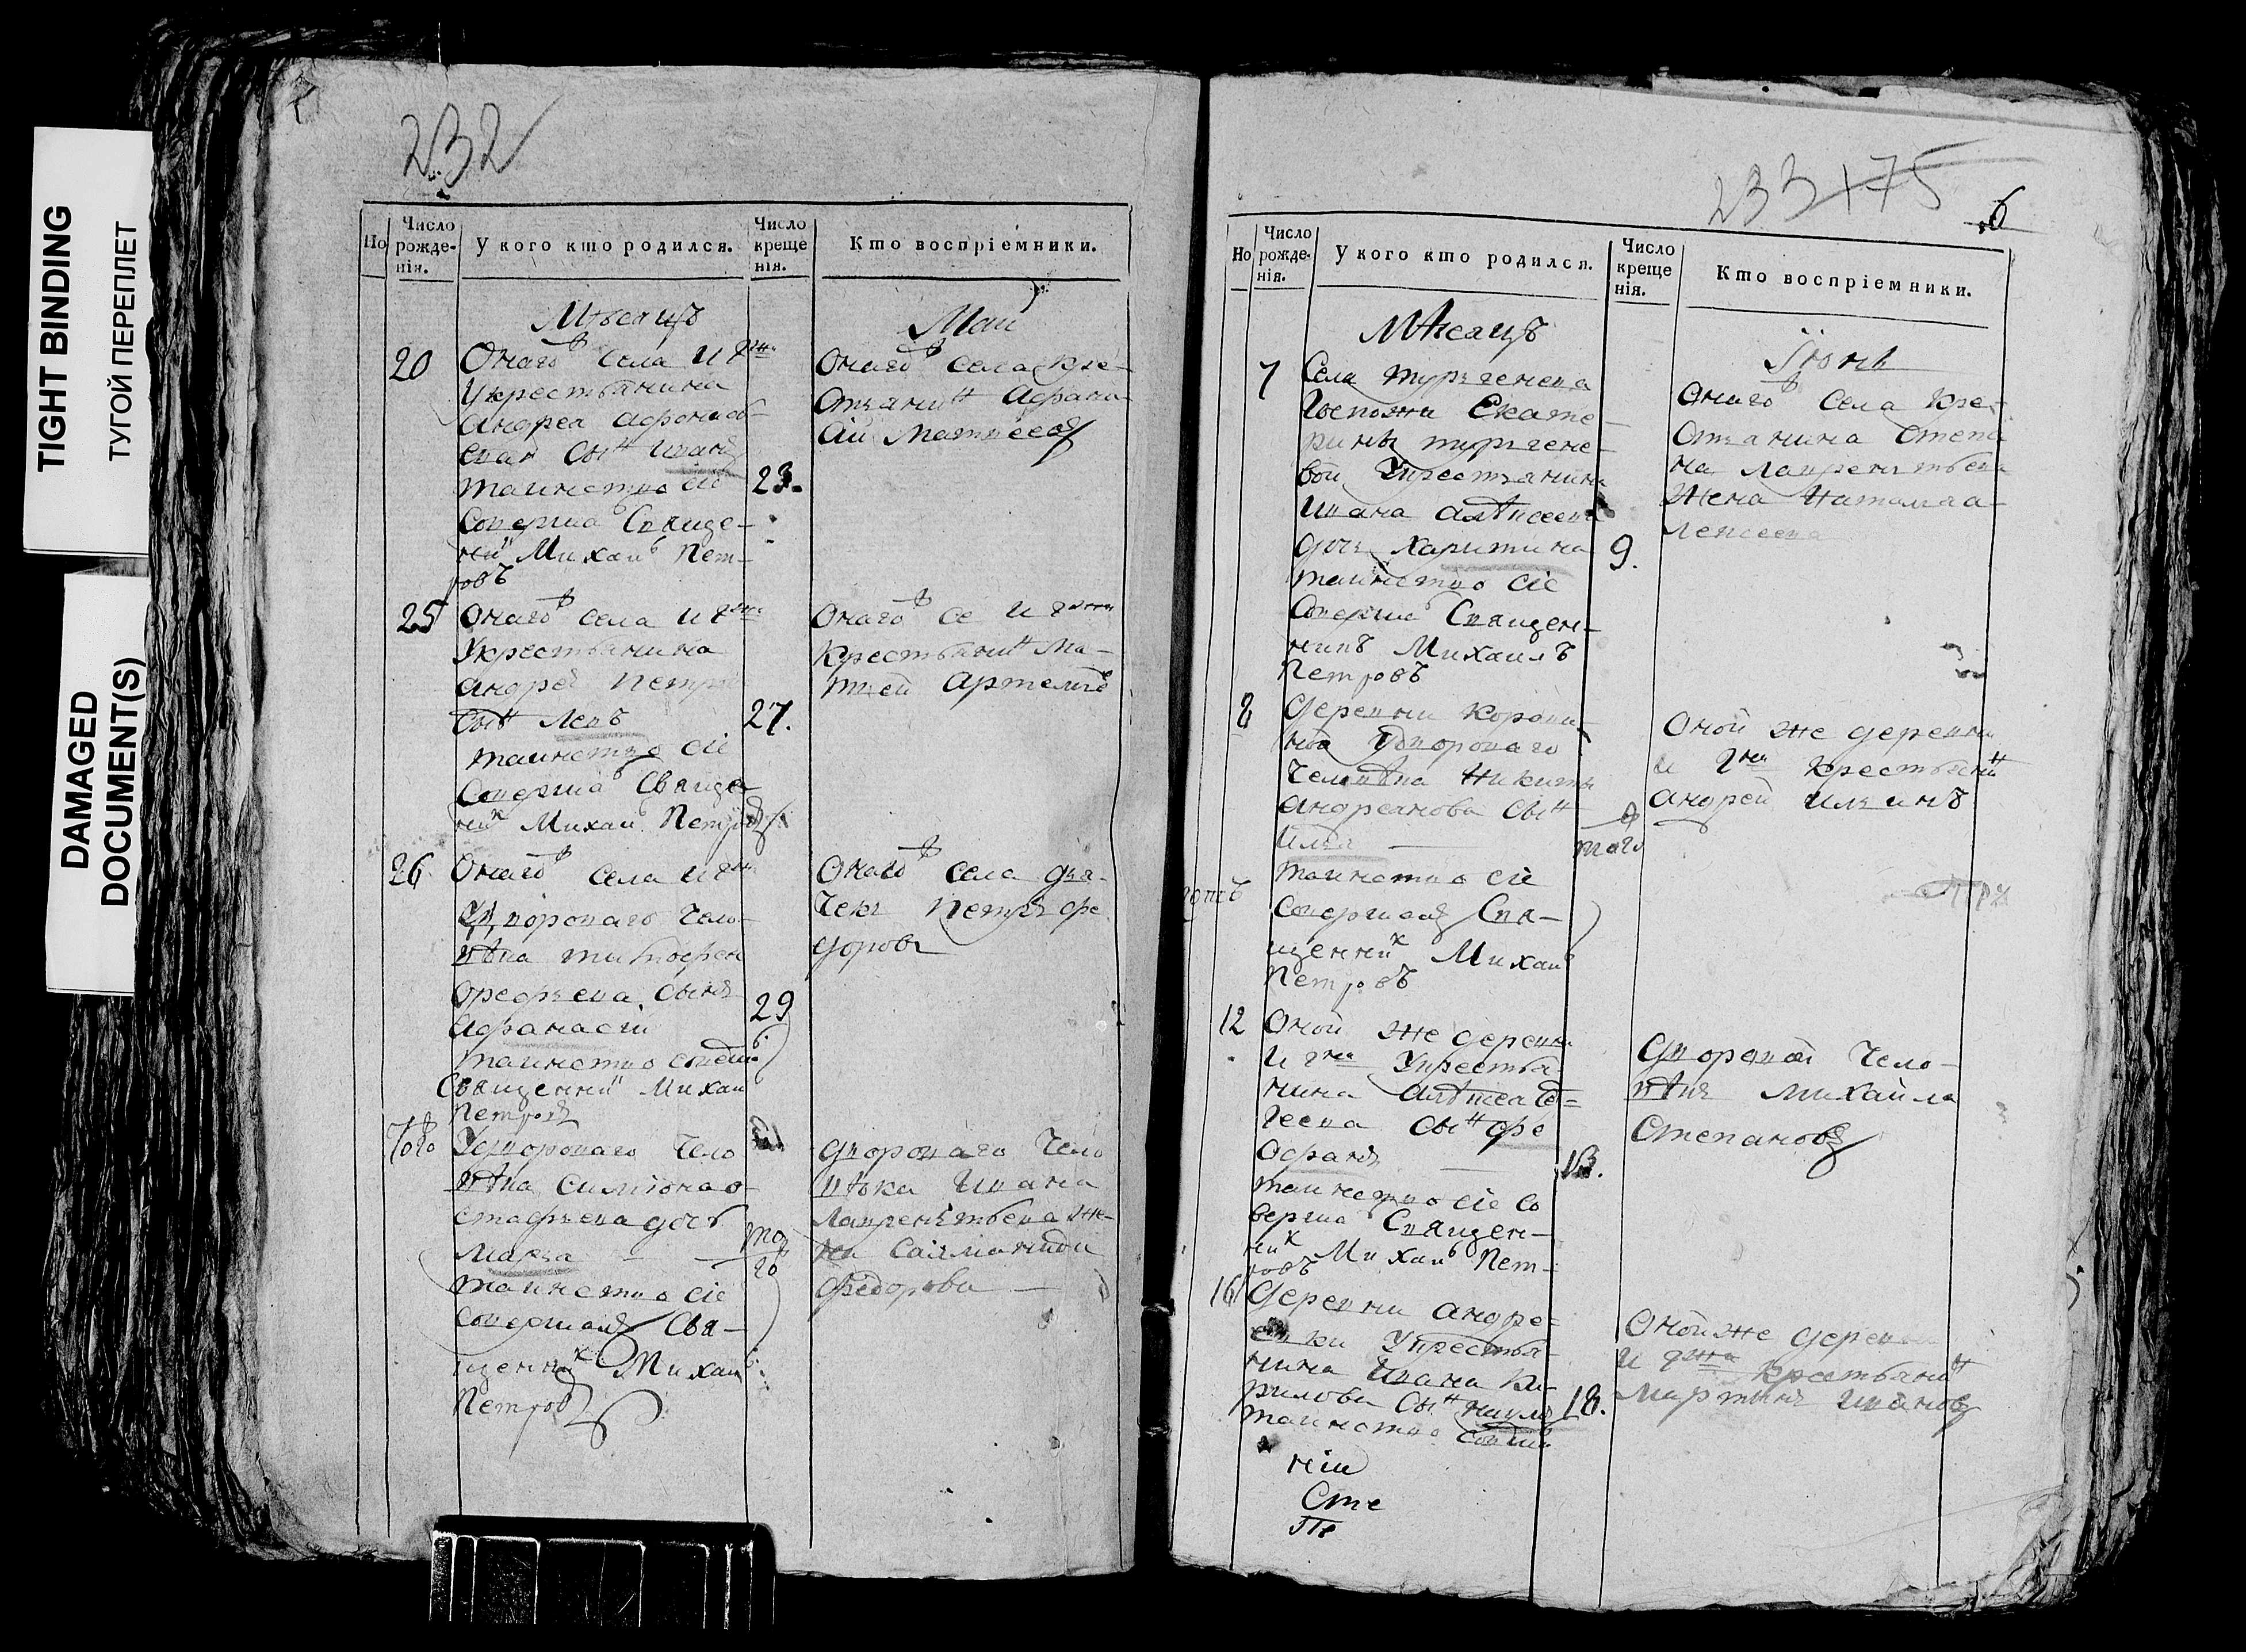 TIGHT BINDING
ТУГОЙ ПЕРЕПЛЕТ
DAMAGED
DOCUMENT(S)
232
Но
Число рожде-нія.
У кого кто родился.
Число креще нія.
Кто воспріемники.
Мѣсяцъ Май
20 Онаго села и гжи
Укрестьянина
Андрея Афонасъ
евая сынъ Иванъ
таинство сіе 23.
соверши Священ-
никъ Михаил Пет-
ровъ
Онаго села кре-
стьянинъ Афана-
сій Матвеевъ
25 Онаго села и гжи
Укрестьянина
Андрея Петро
сынъ Левъ 27.
таинство сіе
соверши Свяще
никъ Михаил Петровъ
Онаго се и гжи
крестьянинъ Ма-
твей Артемье
26 Онаго села и гжи
Удвороваго чело-
вѣка
сынъ 29
Афанасій
таинство
Священникъ Михаил
Петровъ
Онаго села дья-
чекъ Петръ Фе
доровъ
Того Удвороваго чело
вѣка Симіона о
стафьева дочь
Мавра то го
таинство сіе
совершилъ Свя-
щенникъ Михаил
Петровъ
двороваго чело
вѣка Ивана
Лаврентьева же-
на
Федорова
233 175
6
Но
Число рожде-нія.
У кого кто родился.
Число креще нія.
Кто воспріемники.
Мѣсяцъ Іюнь
7 Села Тургенева
Госпожи Екате-
рины Тургене-
вой Укрестьянина
Ивана Алѣксеева
дочь Харитина 9.
таинство сіе
соверши Священ-
никъ Михаилъ
Петровъ
Онаго села кре-
стьянина Степа
на Лаврентьева
жена Наталья а-
лексеева
8 Деревни Корови-
ной Удвороваго
человѣка Никиты
Андреянова сынъ
Илья того
таинство сіе
совершилъ Свя-
щенникъ Михаил
Петровъ
Оной же деревни
и гжи крестьянинъ
Андрей Ильинъ
12 Оной же деревни
и гжи Укрестья-
нина Алѣксея
геева сынъ Фе
офанъ 13.
таинство сіе со
верши Священ-
никъ Михаил Пет-
ровъ
дворовой чело-
вѣкъ Михайла
Степановъ
16 Деревни Андре-
евки Укрестья-
нина Ивана Ки-
рилова сынъ 18.
таинство
Оной же деревни
и гжи крестьянинъ
Мартынъ Ивановъ
ніи
Сте
Пе